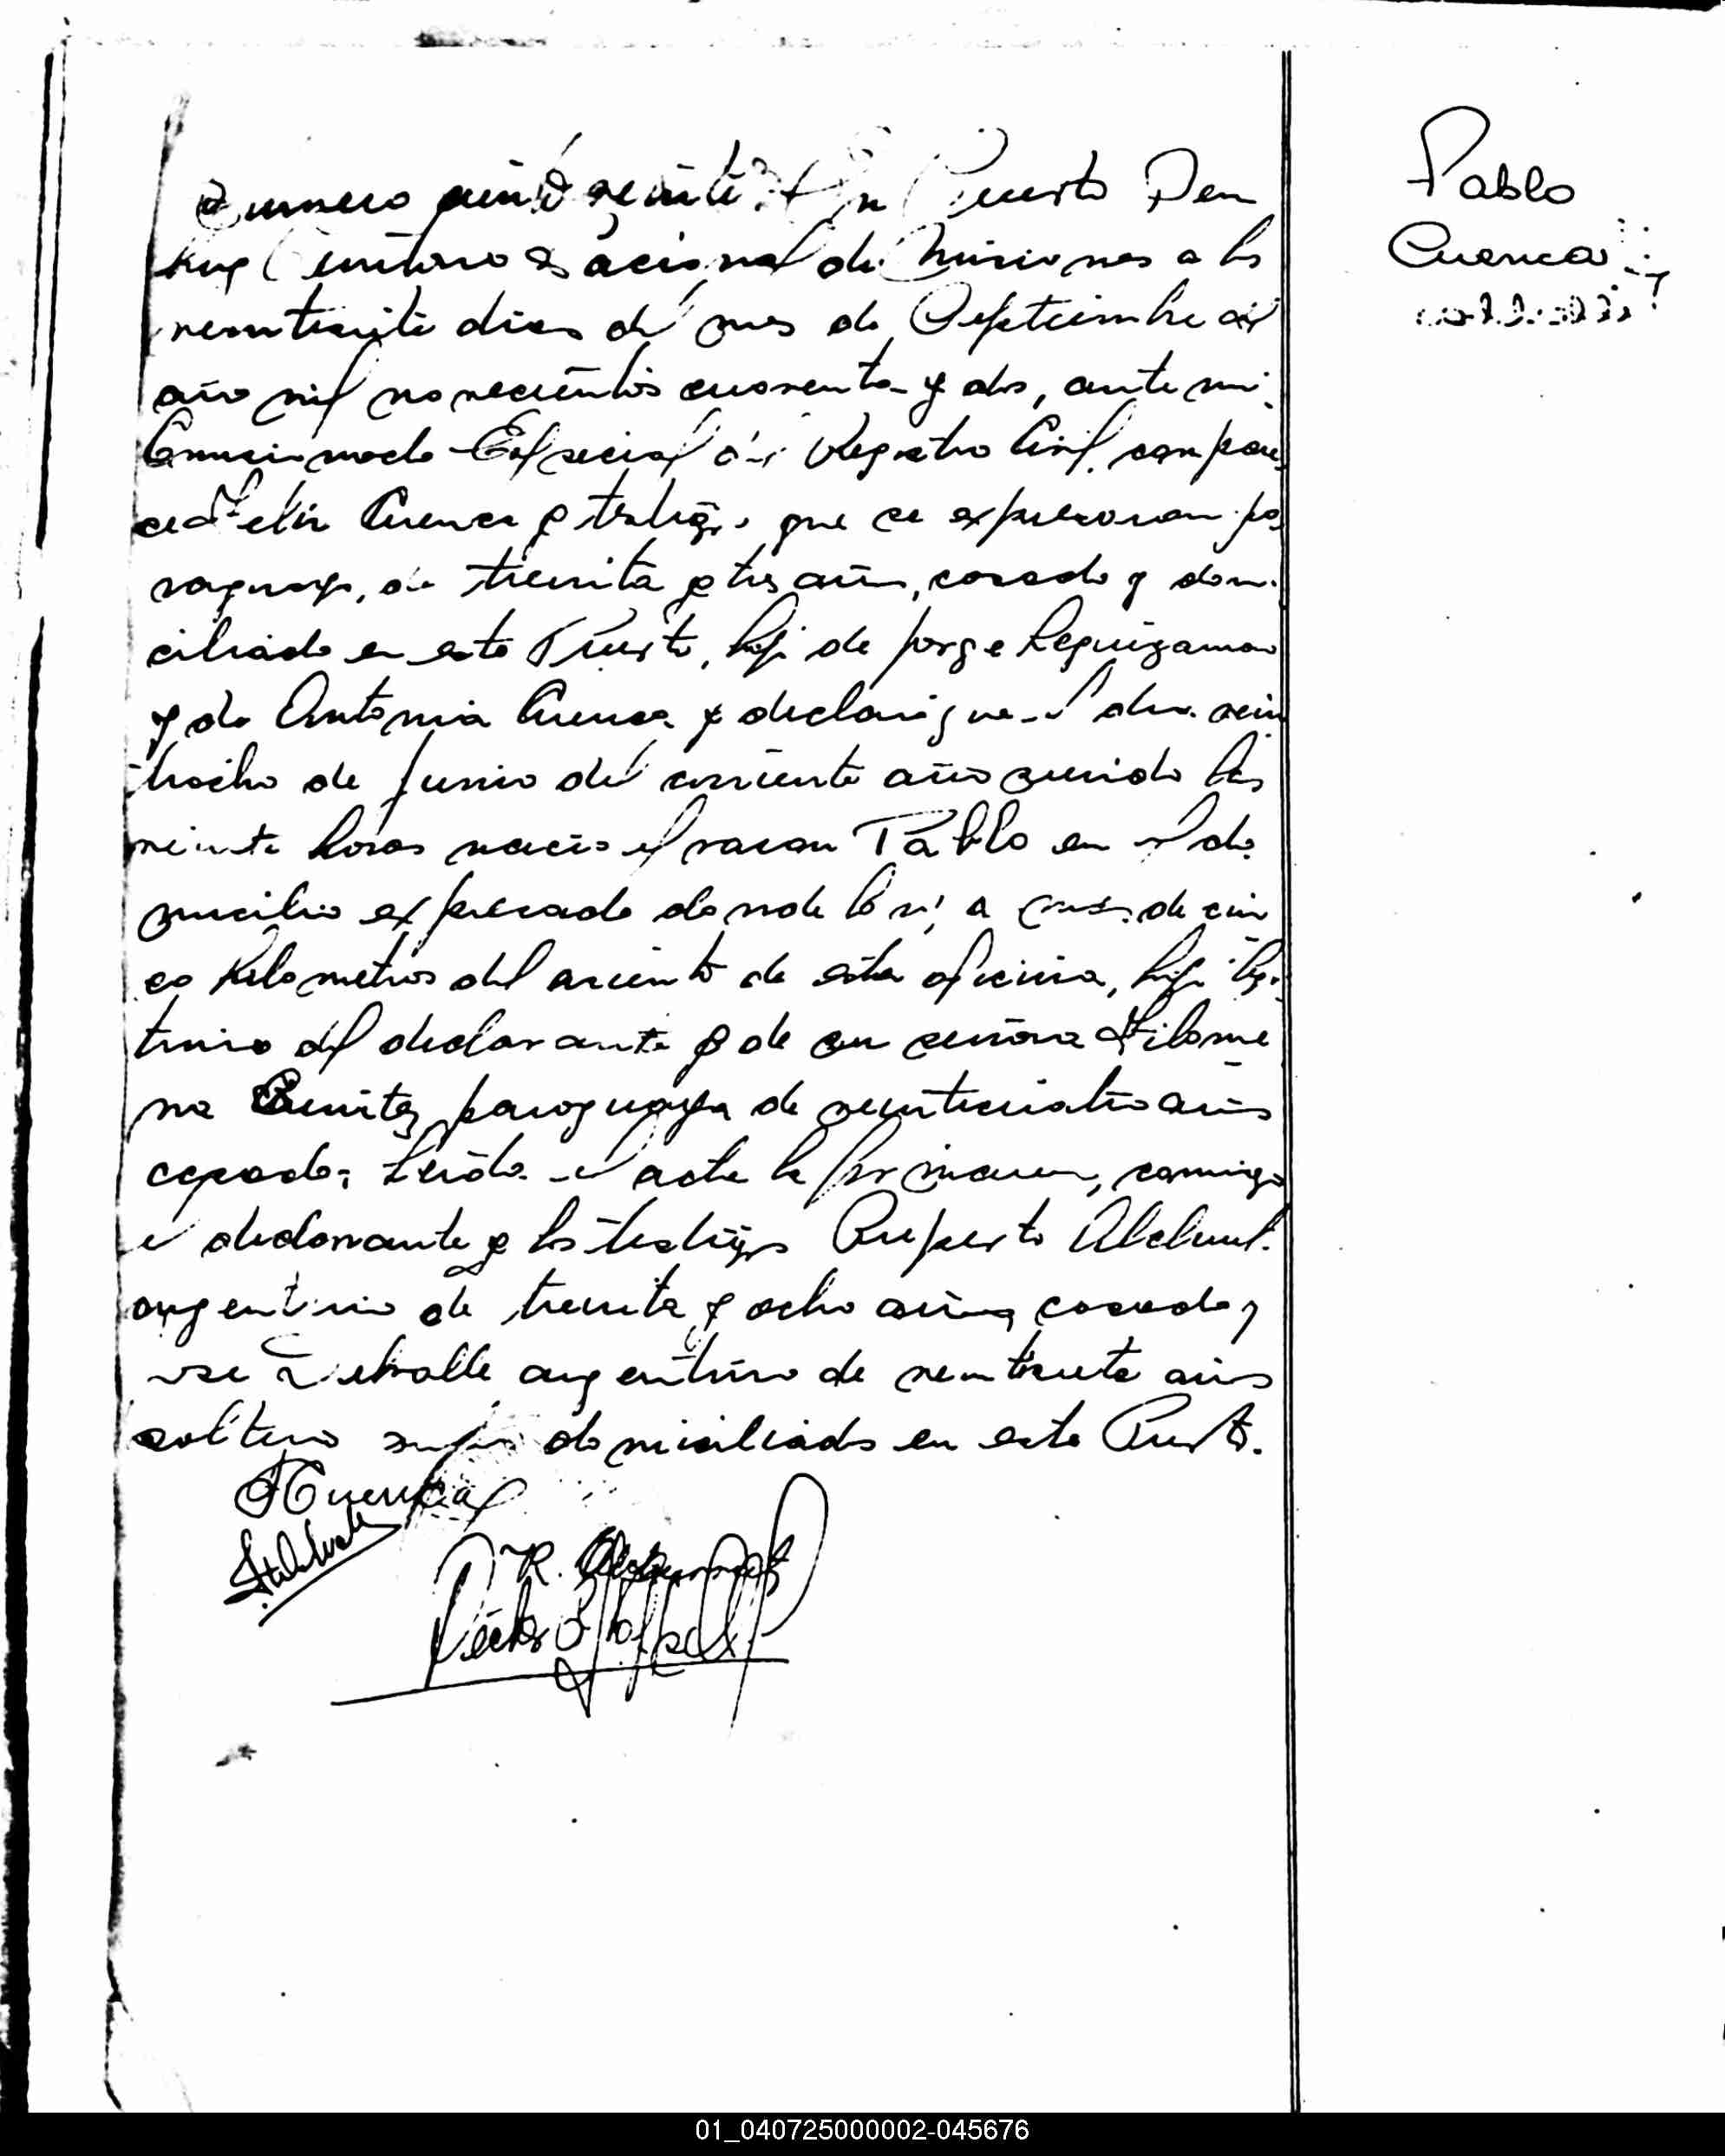 Numero ciento veinte. En Puerto Ben
Territorio Nacional de Misiones a los
veintisiete dias del mes de Septiembre del
año mil novecientos cuarenta y dos, ante mi
Comisionado Especial del Registro Civil, compare
ce Felix Cuenca y testigos que se expresaran pa
raguayo, de treinta y tres años, casado y domi
ciliado en este Puerto, hijo de Jorge Leguizamon
y de Antonia Cuenca y declaró que el dia vein
tiocho de Junio del corriente año siendo las
veinte horas nació el varon Pablo en el do
micilio expresado donde lo vi a mas de cin
co kilometros del asiento de esta oficina, hijo legi
timo del declarante y de su señora Filome
na Benitez paraguaya de veinticuatro años
casada; Leida el acta la firmaron, conmigo
el declarante y los testigos Ruperto
argentino de treinta y ocho años casado y
argentino de veintisiete años
soltero domiciliados en este Puerto.
FCuenca
R.
Pablo
Cuenca
01_040725000002-045676